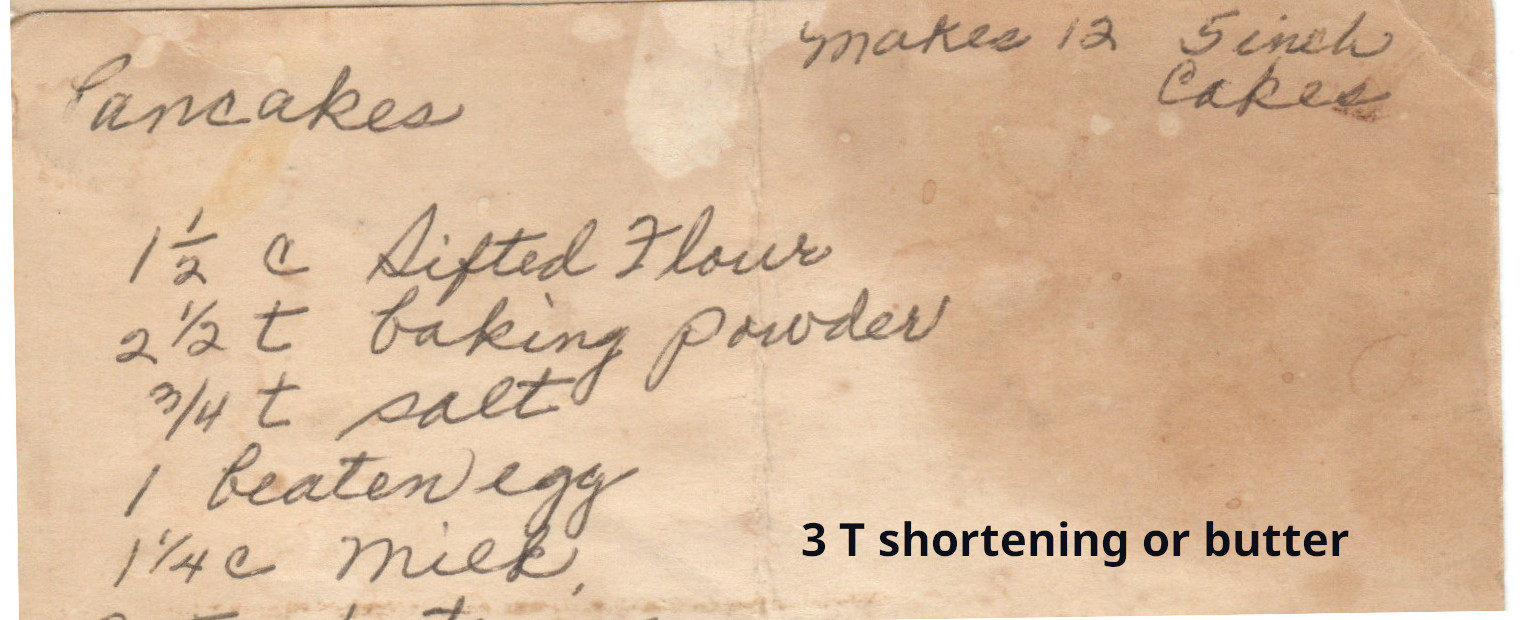 Pancakes
Makes 12 5 inch
Cakes
1 1/2 c Sifted Flour
2 1/2 t baking powder
3/4 t salt
1 beaten egg
1 1/4 c Milk
3 T shortening or butter